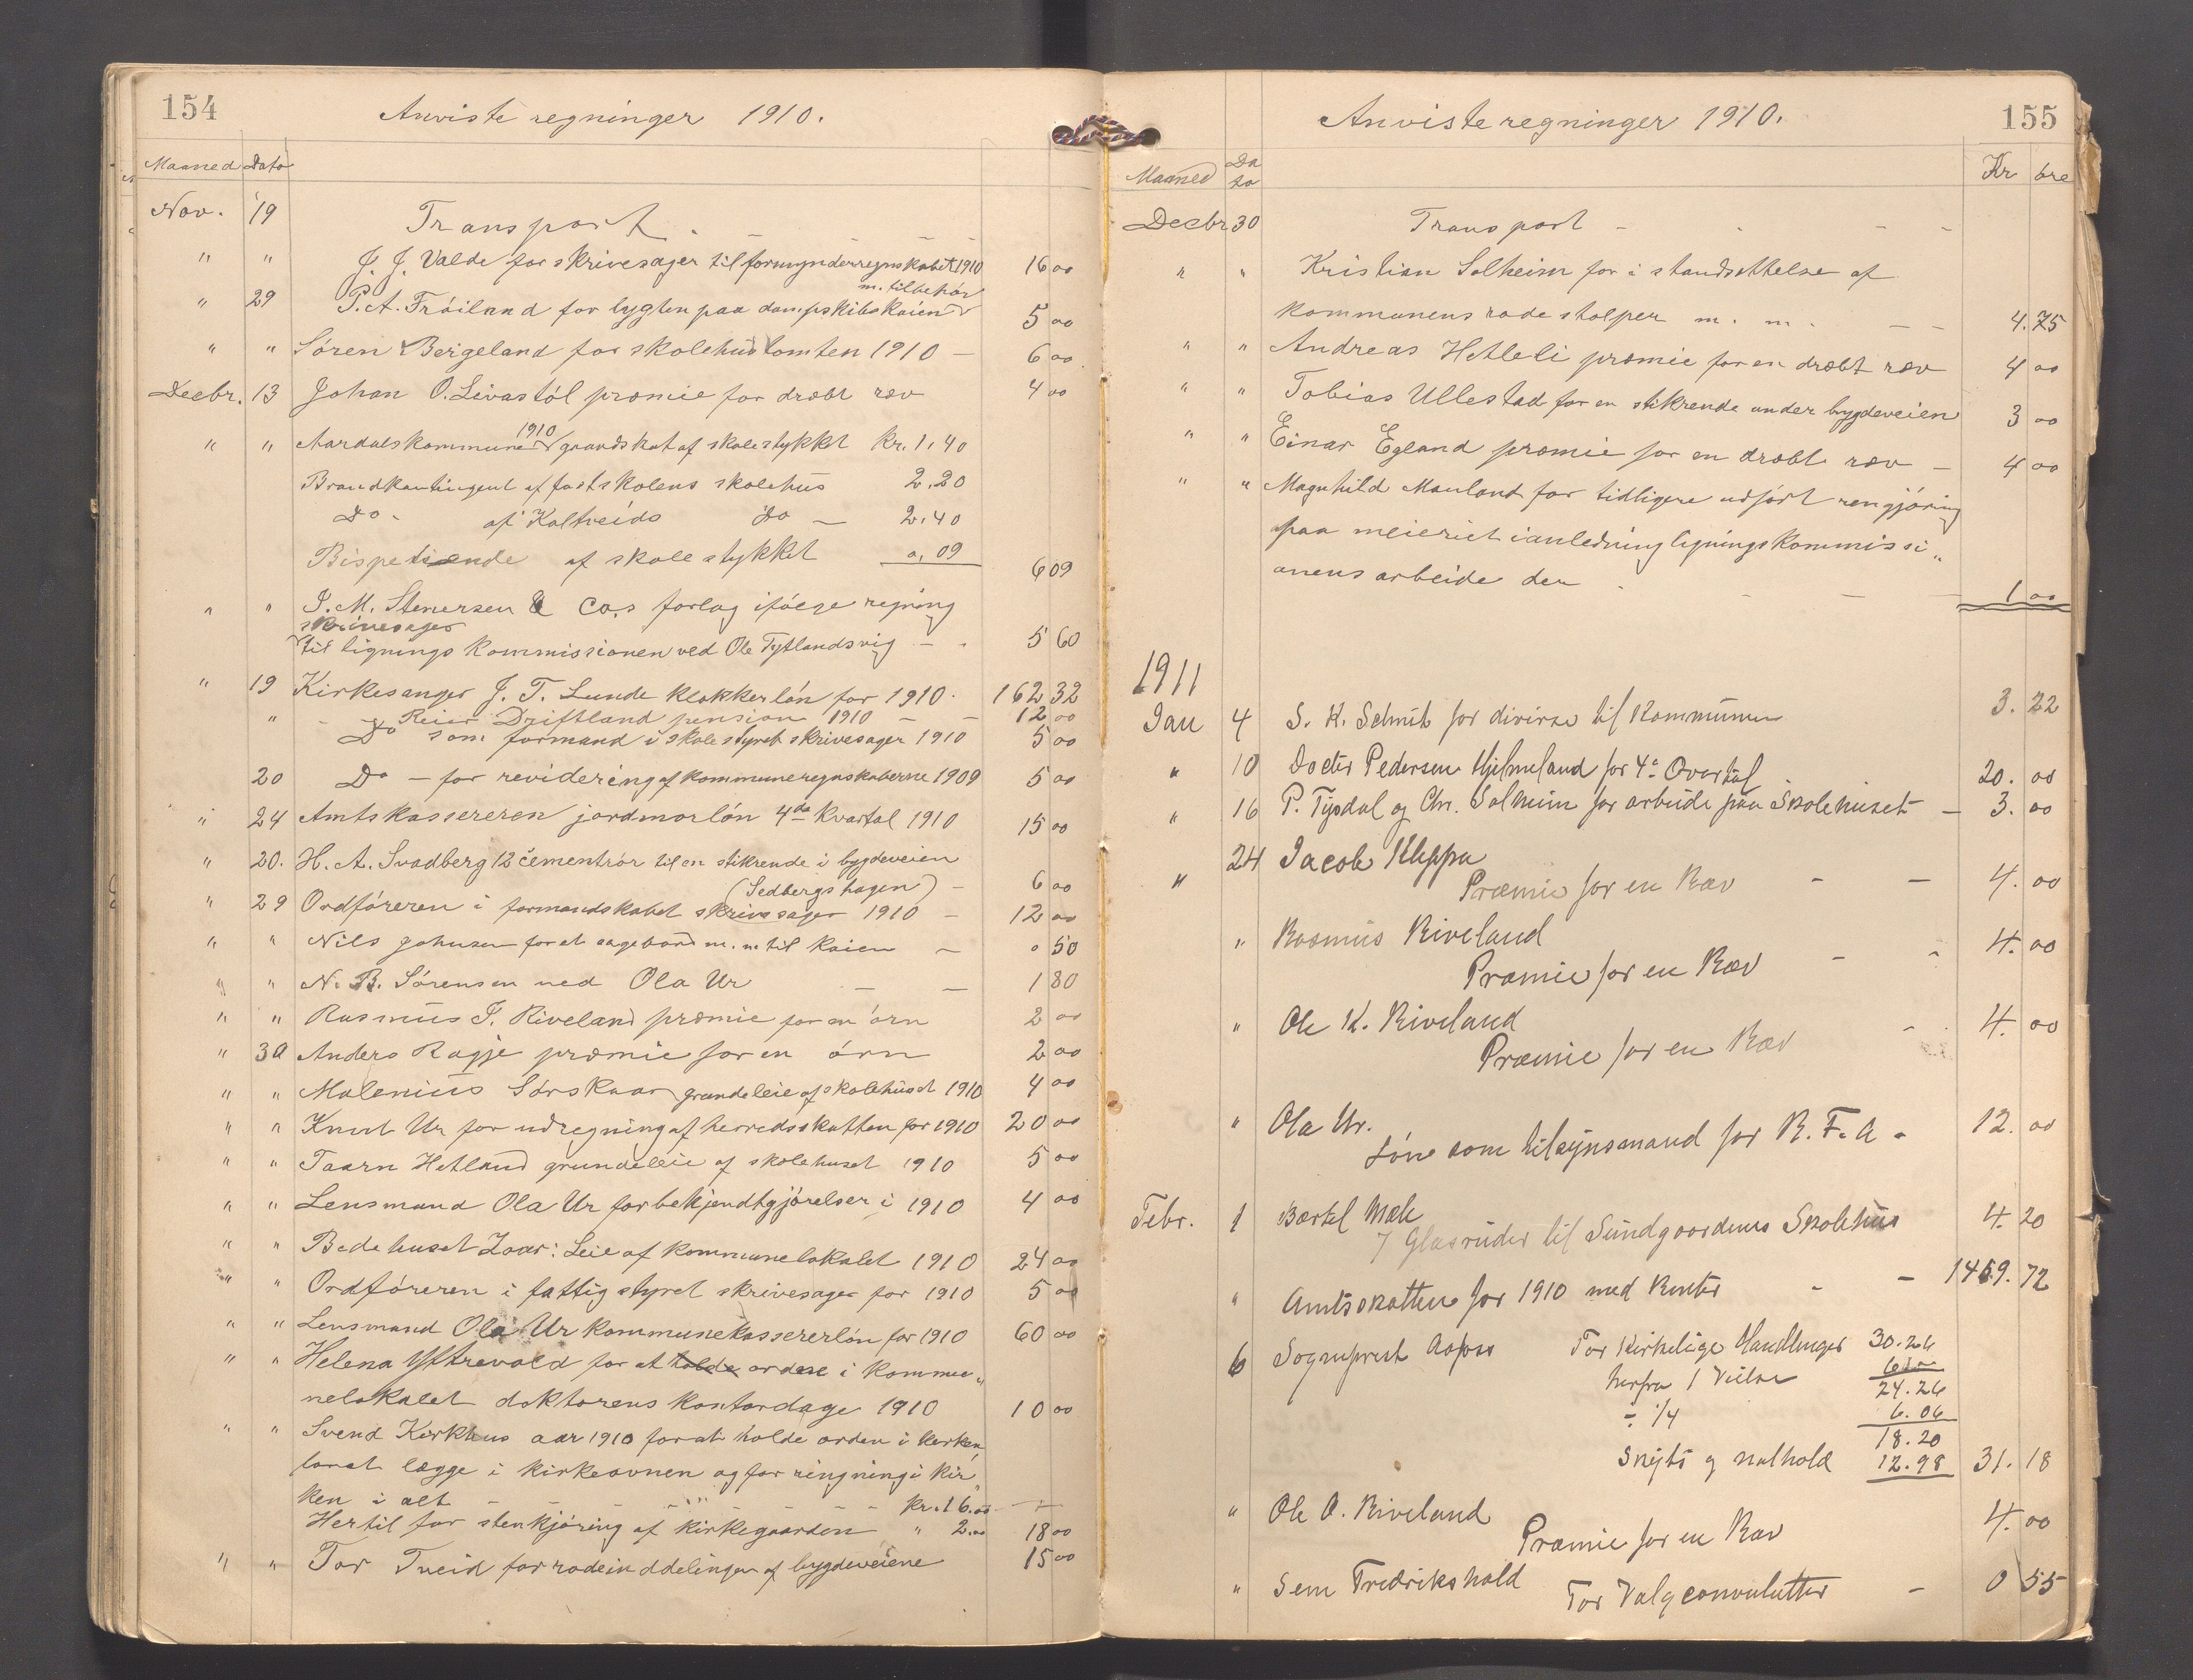 154
Anviste regninger 1910.
Maaned Dato
Nov. 19 Transport.
" " J. J. Valde for skrivesager til formynderregnskabet 1910 16 00
m. tilbehör
" 29 P. A. Fröiland for lygten paa dampskibskaien 5 00
" " Sören Bergeland for skolehustomten 1910 – 6 00
Decbr. 13 Johan O. Livastöl præmie for dræbt ræv 4 00
1910
" " Aardals kommune grundskat af skolestykket kr. 1,40
Brandkontingent af fastskolens skolehus 2.20
Do. af Kaltveids Do – 2.40
Bispetiende af skolestykket 0,09 6 09
" " J. M. Stenersen & Co,s forlag ifölge regning
skrivesager
til ligningskommissionen ved Ole Tytlandsvig – 5 60
" 19 Kirkesanger J. T. Lunde klokkerlön for 1910. 162 32
" – Reier Driftland pension 1910 – – 12 00
Do som formand i skolestyret skrivesager 1910 5 00
20 Do – for revidering af kommuneregnskaberne 1909 5 00
" 24 Amtskassereren jordmorlön 4de Kvartal 1910 15 00
" 20. H. A. Svadberg 12 cementrör til en stikrende i bygdeveien
(Sedbergshagen) – 6 00
" 29 Ordföreren i formandskabet skrivesager 1910 – 12 00
" " Nils Johnsen for et sagebord m. m til kaien – 0 50
" " N. B. Sörensen ved Ola Ur – – 1 80
" " Rasmus T. Riveland præmie for en örn 2 00
" 30 Anders Ragje præmie for en örn 2 00
" " Malenius Sörskaar grundeleie af skolehuset 1910 4 00
" " Knut Ur for udregning af herredsskatten for 1910 20 00
" " Taarn Hetland grundeleie af skolehuset 1910 5 00
" " Lensmand Ola Ur for bekjendtgjörelser i 1910 4 00
" " Bedehuset Zoar: Leie af kommunelokalet 1910 24 00
" " Ordföreren i fattigstyret skrivesager for 1910 5 00
" " Lensmand Ola Ur kommunekassererlön for 1910 60 00
" " Helena Yftrevold for at holde ordne i kommu"
nelokalet doktorens kontordage 1910 10 00
" " Svend Kirkhus aar 1910 for at holde orden i kirken
for at lægge i kirkeovnen og for ringning i kir"
ken i alt – – – kr. 16.00
Hertil for stenkjöring af kirkegaarden " 2.00 18 00
" " Tor Tveid for rodeinddelingen af bygdeveiene 15 00
155
Anviste regninger 1910.
Maaned Da to Kr öre
Decbr 30 Transport – – –
" " Kristian Solheim for i standsettelse af
kommunens rodestolper m. m. – – 4.75
" " Andreas Hetleli præmie for en dræbt ræv 4 00
" " Tobias Ullestad for en stikrende under bygdeveien 3 00
" " Einar Egland præmie for en dræbt ræv – 4 00
" " Magnhild Mauland for tidligere udfört rengjöring
paa meieriet i anledning ligningskommissi"
onens arbeide der – – – 1 00
1911
Jan 4 S. K. Schmit for diverse til Kommunen 3. 22
" 10 Docter Pedersen Hjelmeland for 4e Qvartal 20. 00
" 16 P. Tysdal og Chr. Solheim for arbeide paa Skolehuset – 3. 00
" 24 Jacob Kleppa
Præmie for en Ræv – – 4. 00
" Rasmus Riveland 4. 00
Præmie for en Ræv – –
" Ole K. Riveland 4. 00
Præmie for en Ræv –
" Ola Ur. 12. 00
Löne som tilsynsmand for R. F. A –
Febr. 1 Bærtel Mæle 4. 20
7 Glasruder til Sundgaardens Skolehus
" Amtsskatten for 1910 med Renter – – 1459. 72
6 Sogneprest For Kirkelige Handlinger 30.26
herfra 1 Vielse 6.00
24.26
÷ 1/4 6.06
18.20
Skyds og 12.98 31. 18
" Ole A. Riveland 4. 00
Præmie for en Ræv
" Sem Fredrikshald
For Valgconvolutter – 0 55